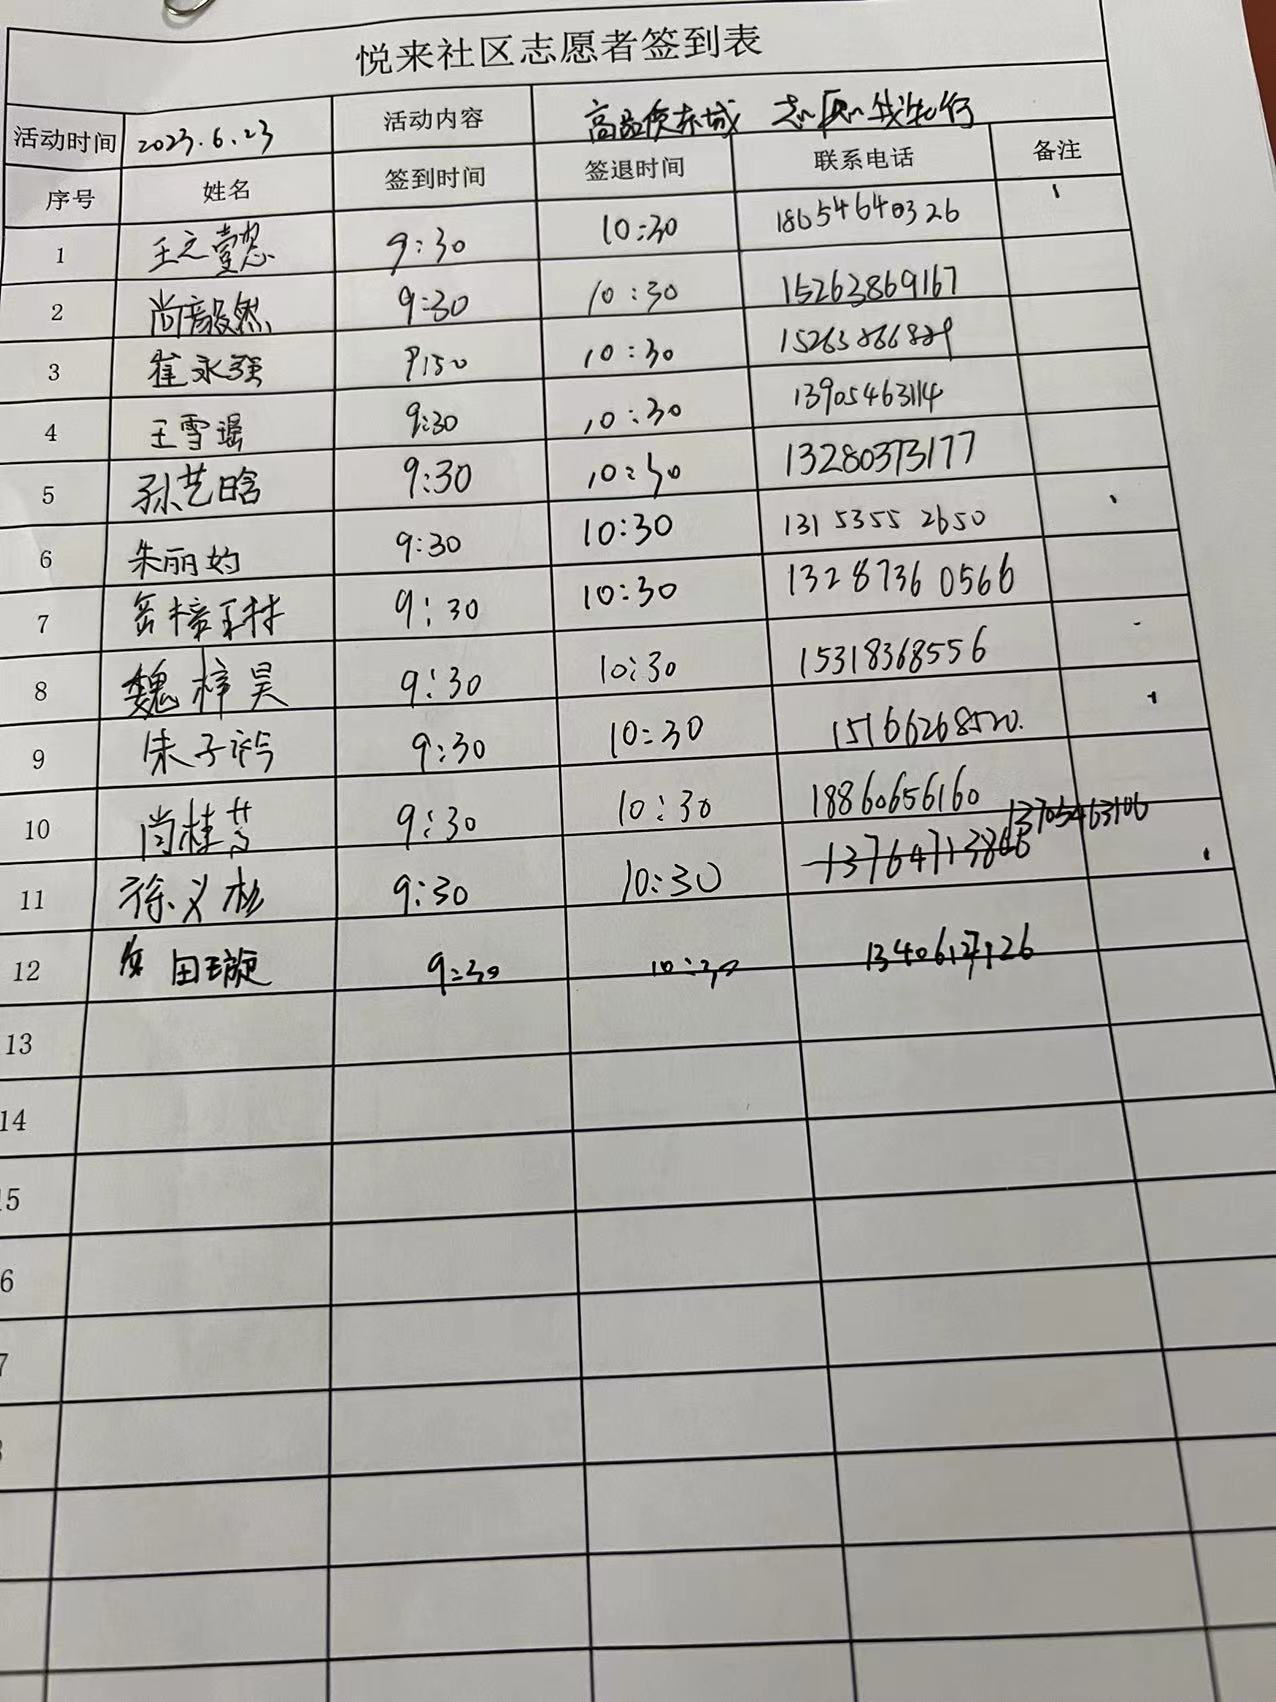 悦来社区志愿者签到表
活动时间 2023.6.23 活动内容 志愿我先行
序号 姓名 签到时间 签退时间 联系电话 备注
1 王之 9:30 10:30 18654640326
2 尚毅然 9:30 10:30 15263869167
3 崔永强 10:30
4 王雪瑶 9:30 10:30 13905463114
5 孙艺晗 9:30 10:30 13280373177
6 朱丽灼 9:30 10:30 131 5355 2650
7 9:30 10:30 1328736 0566
8 魏梓昊 9:30 10:30 15318368556
9 朱子衿 9:30 10:30 15166268520.
10 尚桂芳 9:30 10:30 18860656160
13705463106
11 徐义杉 9:30 10:30
12 田璇 9:30 10:30
13
14
15
6
7